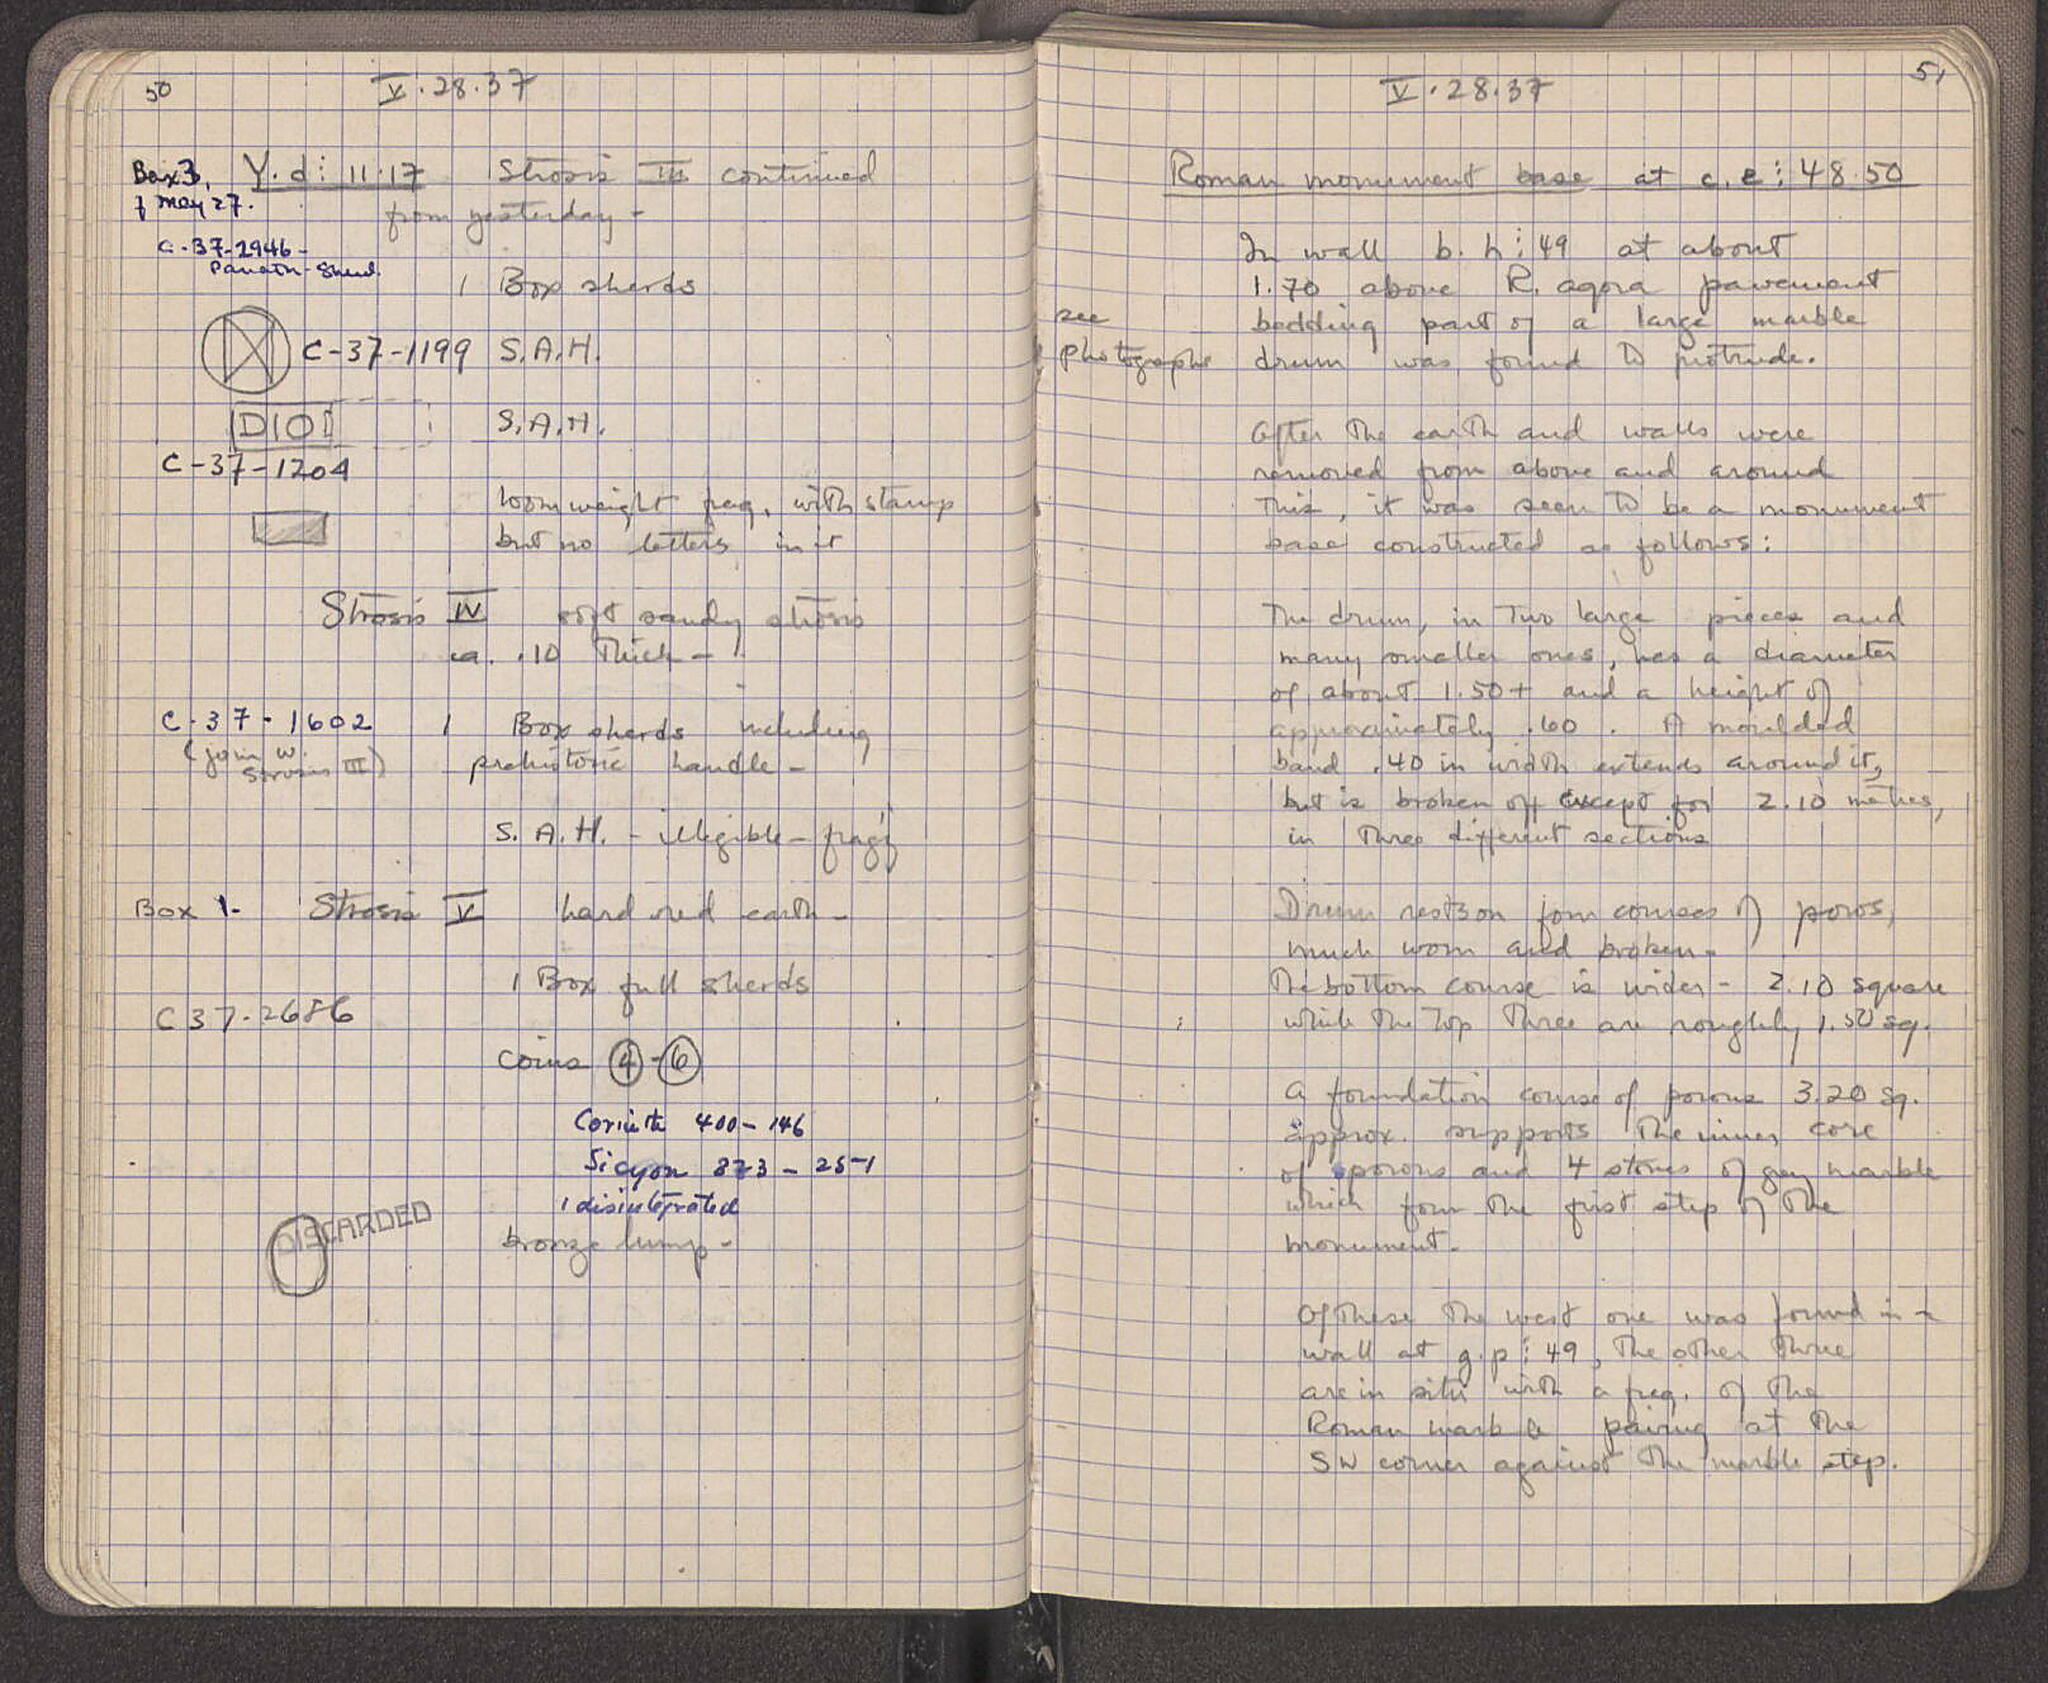 50
V.28.37
Box 3, Y.d: 11.17 Strosis III continued
of May 27. from yesterday -
C-37-2946-
Panath-Sherd.
1 Box sherds
C-37-1199 S.A.H.
DIO S.A.H.
C-37-1204
loomweight frag. with stamp
but no letters in it
Strosis IV soft sandy strosis
ca. .10 thick -
C-37-1602 1 Box sherds including
(join w. prehistoric handle -
Strosis III)
S.A.H. - illegible - frag
Box 1- Strosis V hard red earth -
1 Box full sherds
C37-2686
Coins 4 - 6
Corinth 400-146
Sicyon 323-251
1 disintegrated
DISCARDED
bronze lump -
51
V.28.37
Roman monument base at c.e: 48.50
In wall b.h: 49 at about
1.70 above R. agora pavement
see
bedding part of a large marble
photographs drum was found to protrude.
After the earth and walls were
removed from above and around
this, it was seen to be a monument
base constructed as follows:
The drum, in two large pieces and
many smaller ones, has a diameter
of about 1.50+ and a height of
approximately .60. A moulded
band .40 in width extends around it,
but is broken off except for 2.10 metres,
in three different sections
Drum rests on four courses of poros,
much worn and broken-
The bottom course is wider - 2.10 square
while the top three are roughly 1.50 sq.
A foundation course of poros 3.20 sq.
approx. supports the inner core
of poros and 4 stones of gray marble
which form the first step of the
monument-
Of these the west one was found in a
wall at g.p: 49, the other three
are in situ with a frag. of the
Roman marble paving at the
SW corner against the marble step.